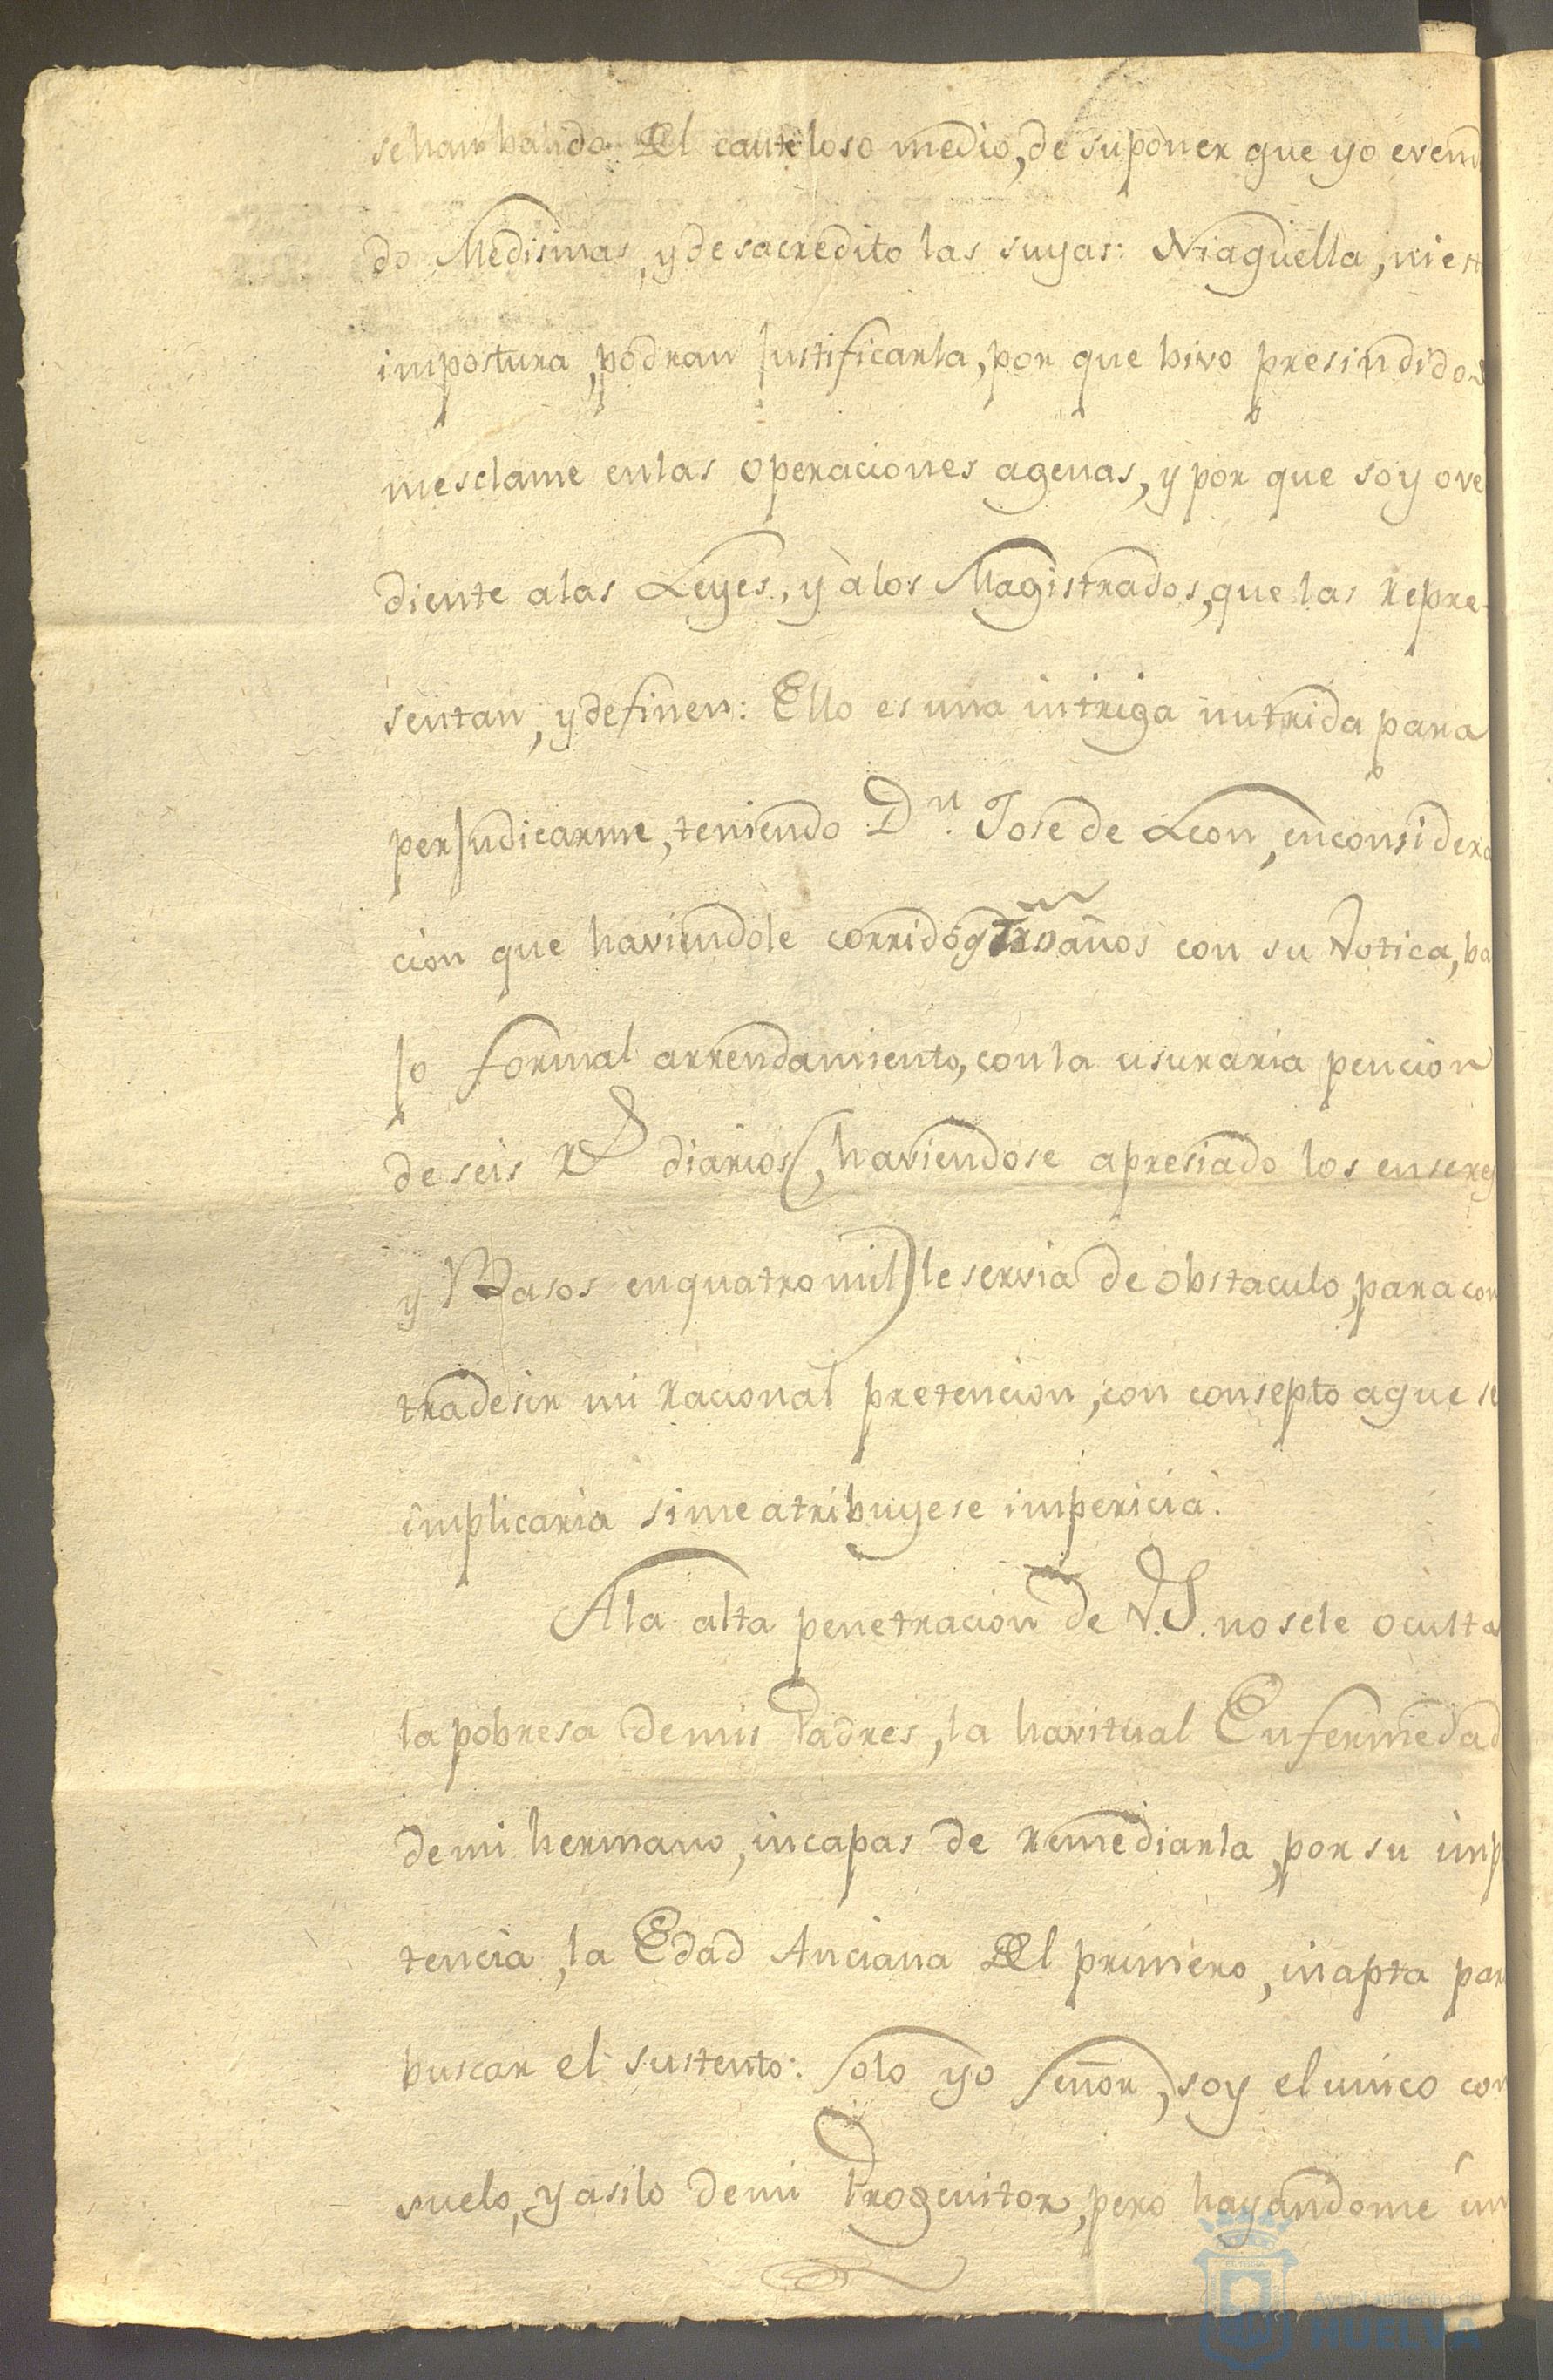 se han balido del cauteloso medio, de suponer que yo evend
do Medisinas, y desacredito las suyas: Ni aquella, ni est
impostura, podran justificarla, por que bivo presindido d
mesclame en las operaciones agenas, y por que soy ove
diente a las Leyes, y à los Magistrados, que las repre-
sentan, y definen: Ello es una intriga nutrida para
perjudicarme, teniendo Dn. Jose de Leon, en considera
cion que haviendole corrido años con su Votica, ba
jo formal arrendamiento, con la usuraria pencion
de seis rs diarios (haviendose apresiado los enseres
y Basos en quatro mil) le servia de obstaculo, para con
tradesir mi racional pretencion, con consepto a que se
implicaria si me atribuyese impericia.
A la alta penetracion de V.S. no se le oculta
la pobresa de mis Padres, la havitual Enfermedad
de mi hermano, incapas de remediarla, por su imp
tencia, la Edad Anciana del primero, inapta par
buscar el sustento: Solo yo Señor, soy el unico con
suelo, y asilo de mi Progenitor, pero hayandome im
Ayuntamiento de
HUELVA